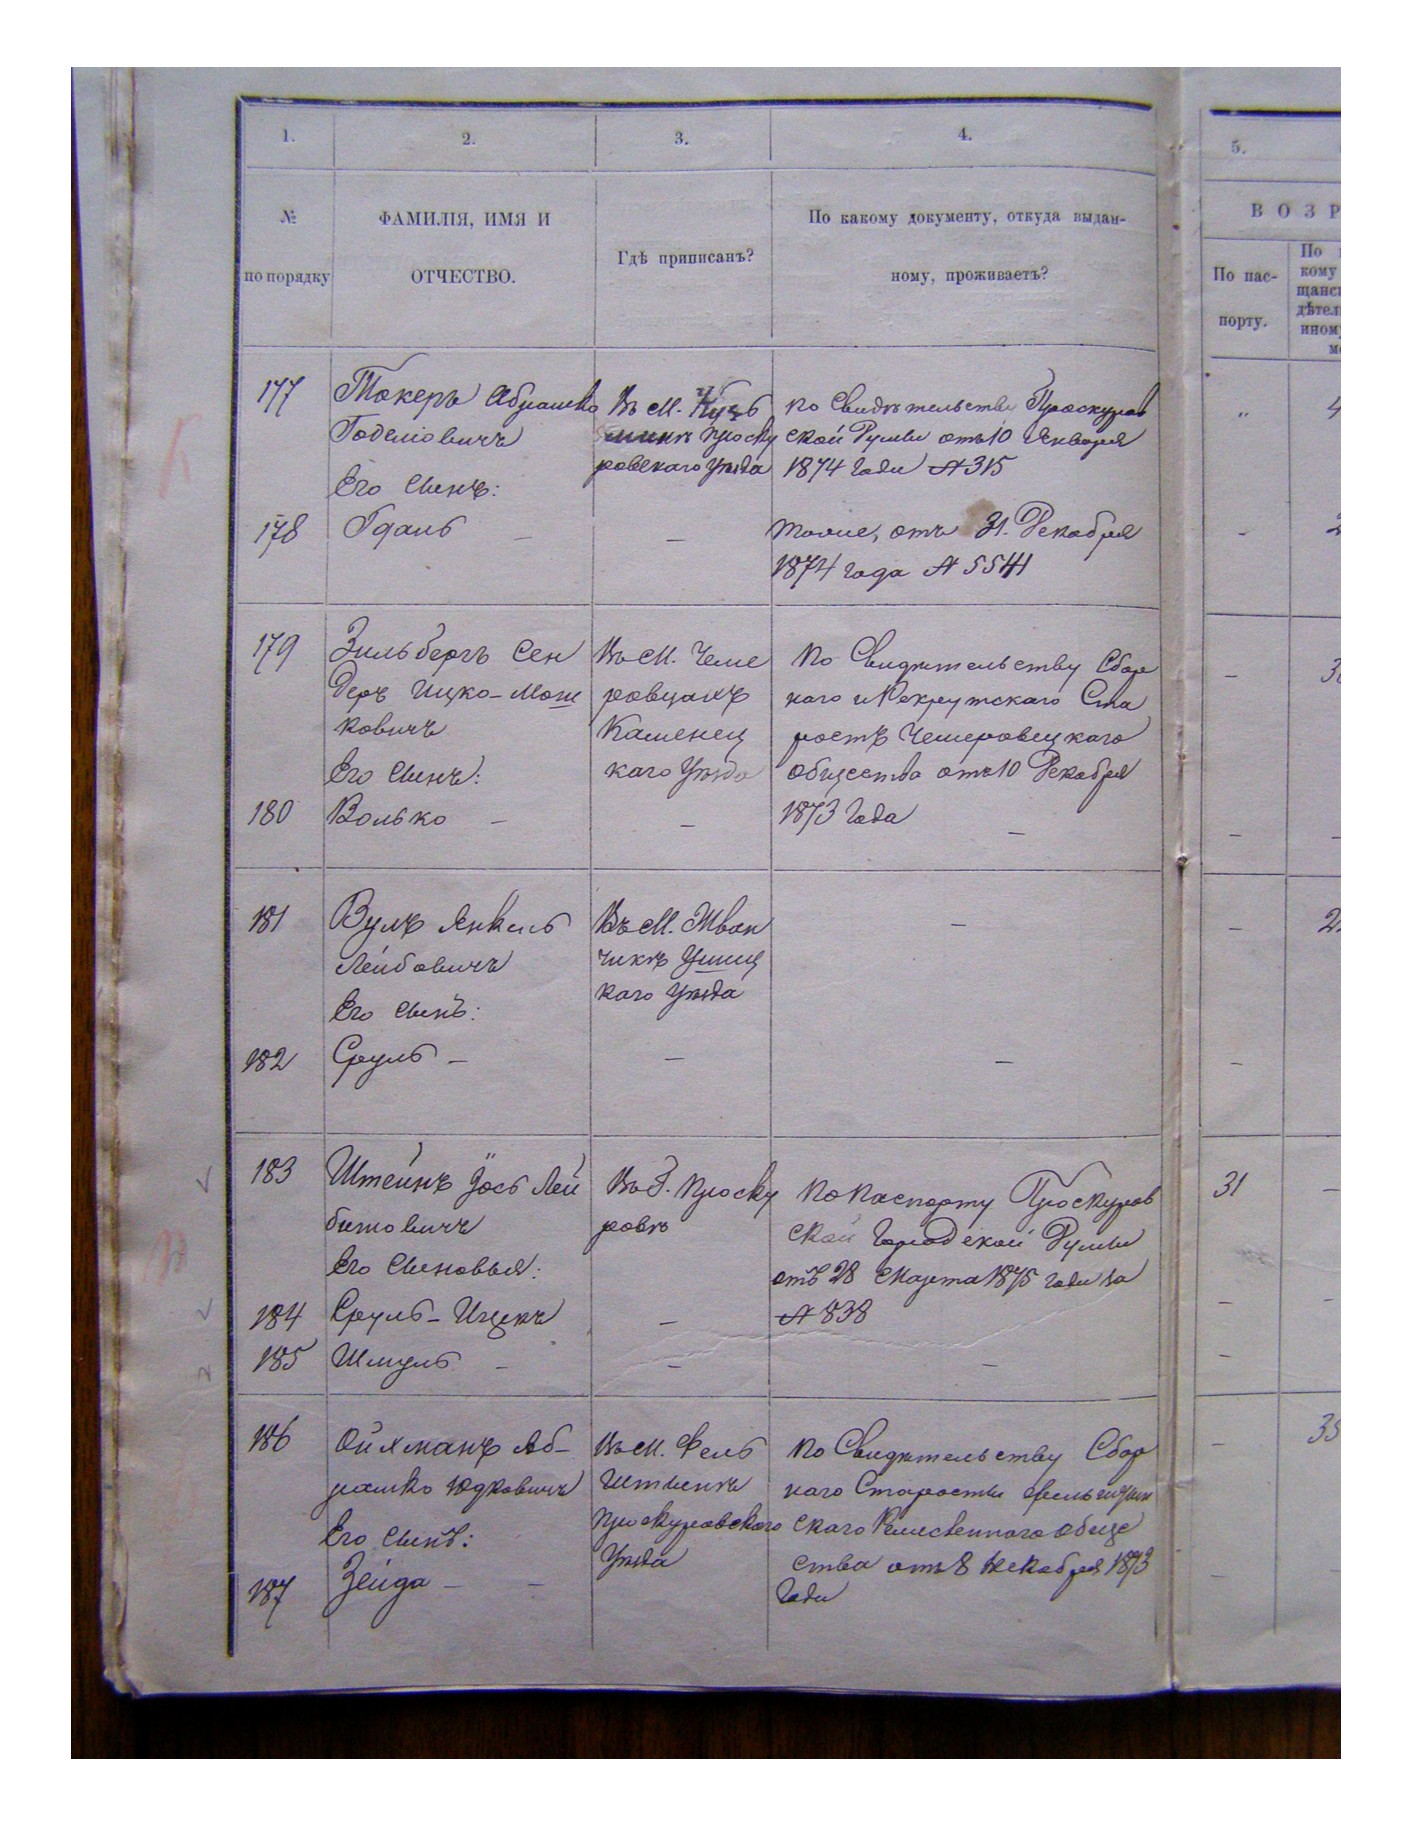 1. 2. 3. 4. 5.
№ по порядку
ФАМИЛІЯ, ИМЯ И
ОТЧЕСТВО.
Гдѣ приписанъ?
По какому документу, откуда выдан-
ному, проживаетъ?
ВОЗР
По пас-
порту.
По
кому
щанс
дѣтел
ином
м
177
Токеръ Абрамко
Годелiовичъ
Его сынъ:
Въ м.
Проску
ровскаго уѣзда
по Свидѣтельству Проскуров
ской Думы отъ 10 Января
1874 года № 315
"
4
178
–
–
тоже, отъ 31. Декабря
1874 года № 5541
-
2
179
Зильбергъ Сен
деръ Ицко-Мош
ковичъ
Его сынъ:
Въ м. Чеме
ровцахъ
Каменец
каго уѣзда
по Свидѣтельству Сбор
наго и Рекрутскаго Ста
ростъ Чемеровецкаго
общества отъ 10 Декабря
1873 года
–
3
180
Волько –
–
–
–
–
181
Вулъ Янкель
Лейбовичъ
Его сынъ:
Въ м. Жван
чикѣ Ушиц
каго уѣзда
–
–
2
182
Сруль –
–
–
–
183
Штейнъ Іось Лей
бишовичъ
Его сыновья:
Въ г. Проску
ровѣ
по паспорту Проскуров
ской Городской Думы
отъ 28 Марта 1875 года за
№ 838
31
–
184
Сруль-Ицекъ
–
–
–
185
Шмуль –
–
–
–
186
Ойхманъ Аб-
рамко Юдковичъ
Его сынъ:
Въ м. Фель
штинѣ
Проскуровскаго
уѣзда
по Свидѣтельству Сбор
наго Старосты Фельштин
скаго Ремесленнаго обще
ства отъ 8 Декабря 1873
года
–
35
187
Зейда – –
–